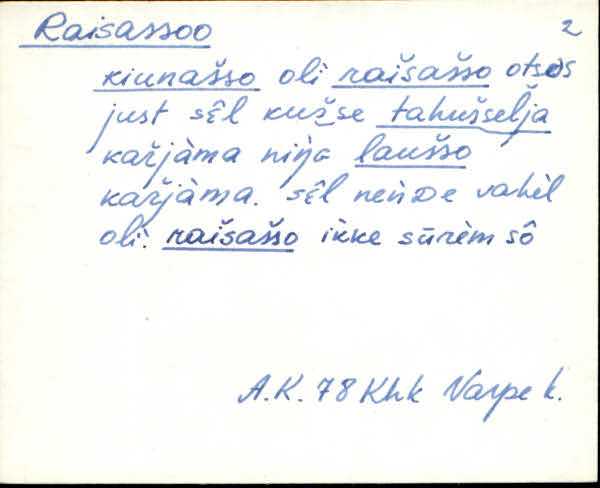 Raisassoo 2
kiunaššo oli raišaššo otsɒs
just sêl kušse tahuššelja
karjàma niŋɢ laušso
karjàma. sêl neńde vahèl
oli raišaššo ìkke sūrèm sô
A.K. 78 Khk Varpe k.